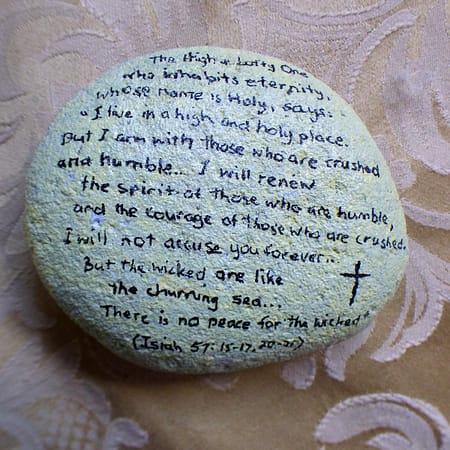 The High & Lofty One
who inhabits eternity,
whose name is Holy, says:
"I live in a high and holy place.
But I am with those who are crushed
and humble... I will renew
the spirit of those who are humble,
and the courage of those who are crushed.
I will not accuse you forever...
But the wicked are like
the churning sea...
There is no peace for the wicked"
(Isiah 57:15-17, 20-21)